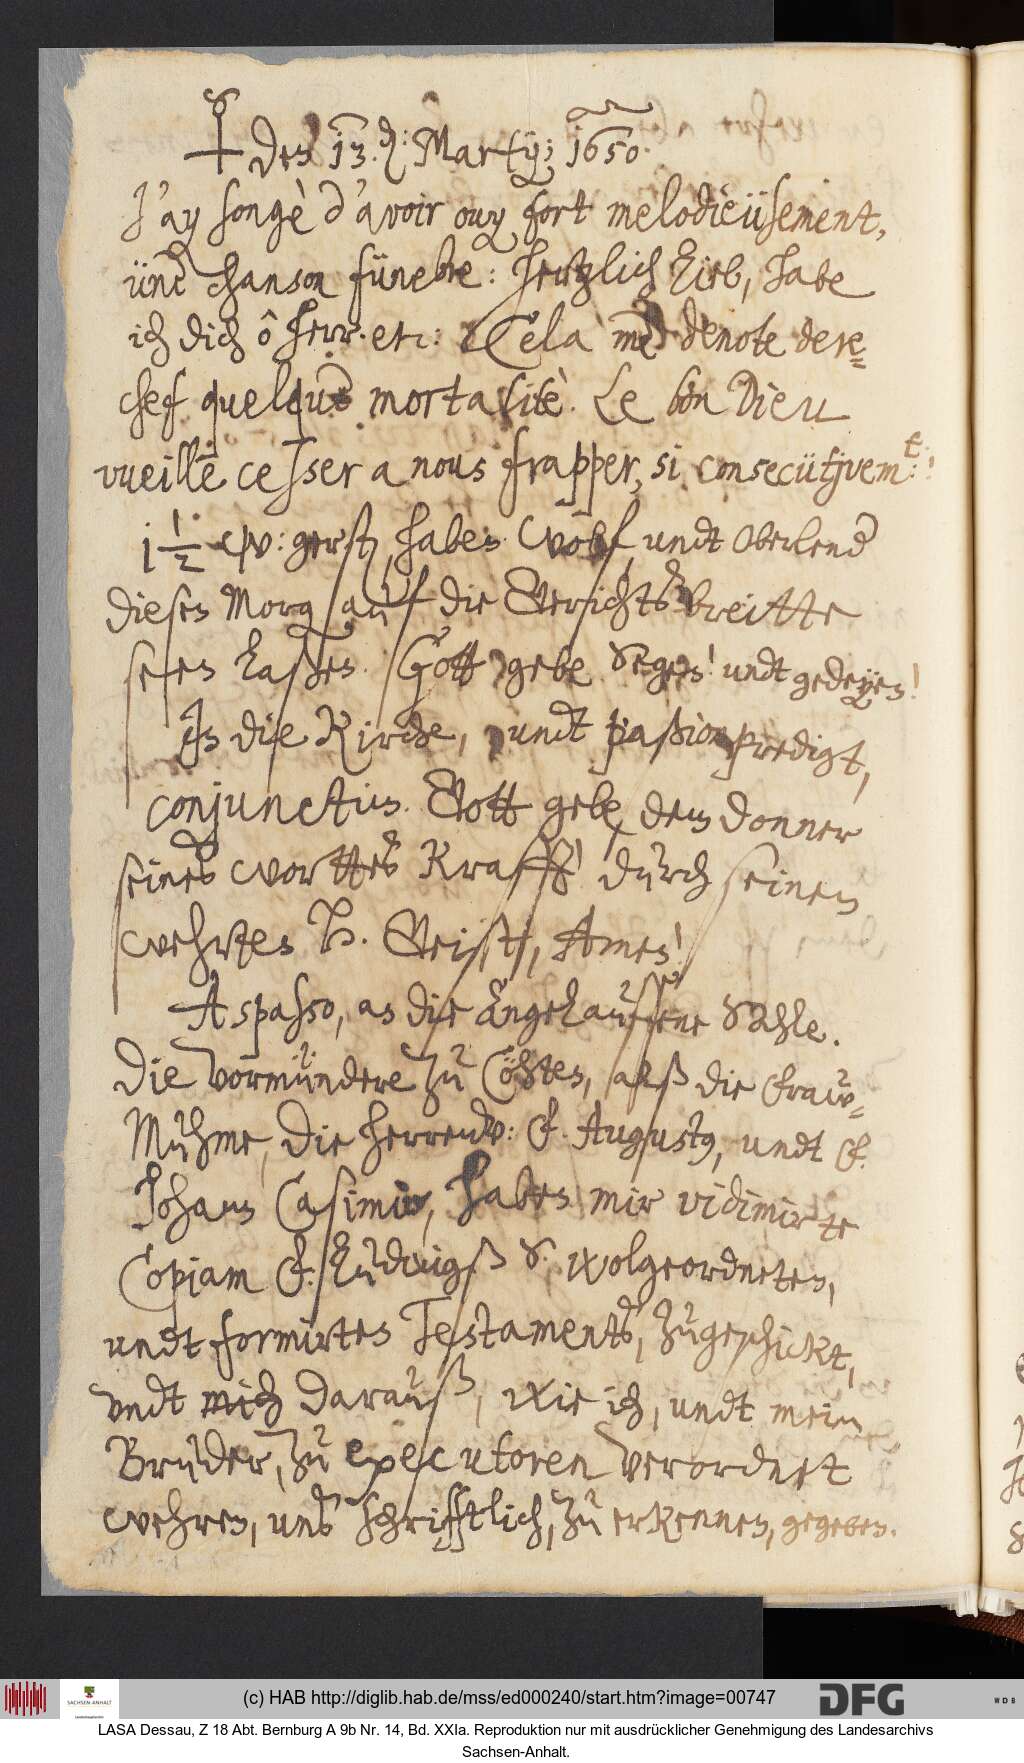 ☿ den 13.den: Martij; 1650.
J'ay songè d'avoir ouy fort melodieüsement,
üne chanson fünebre: hertzlich Lieb, habe
ich dich ô herr. etc: Cela me denote dere-
chef quelque mortalitè. Le bon Dieu
vueille cesser a nous frapper, si consecütivemt:!
1 1/2 wß: gerst, haben Wolf, undt Oberlender
diesen Morgen auf die Gerichtsbreitte
seen laßen. Gott gebe Segen! undt gedeyen!
In die Kirche, undt paßionpredigt,
conjunctim. Gott gebe dem donner
seines worttes Krafft! durch seinen
wehrten h. Geist, Amen!
A spasso, an die Angelauffene Sahle.
Die Vormündere zu Cöhten, alß die Fraw-
Muhme, die herrenv: F. Augustus, undt F.
Johann Casimir, haben mir vidimirte
Copiam F. Ludwigß S. wolgeordneten,
undt formirten Testaments, zugeschickt,
undt mich darauß, wie ich, undt mein
Bruder, zu executoren verordnet
wehren, uns schrifftlich, zu erkennen, gegeben.
SACHSEN-ANHALT
(c) HAB http://diglib.hab.de/mss/ed000240/start.htm?image=00747
DFG
WDB
LASA Dessau, Z 18 Abt. Bernburg A 9b Nr. 14, Bd. XXIa. Reproduktion nur mit ausdrücklicher Genehmigung des Landesarchivs
Sachsen-Anhalt.